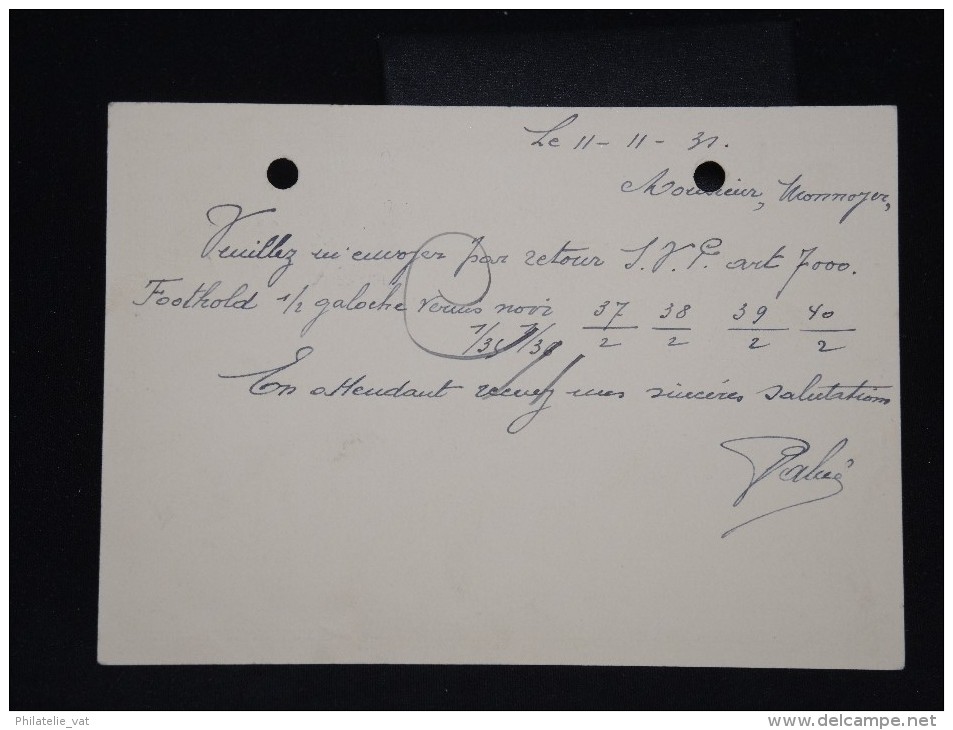 Le 11 - 11 - 31.
Monsieur, Monnoyer,
Veuillez m'envoyer par retour S.V.P. art 7000.
Foothold 1/2 galoche Vernis noir 37/2 38/2 39/2 40/2
1/35 1/36
En attendant recevez mes sincères salutations
Philatelie_vat
delcampe.net